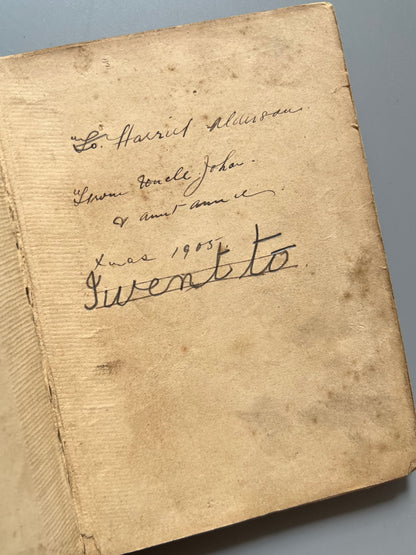 "To. Harriet
"From Uncle John.
& aunt annie
Xmas 1905.
I went to